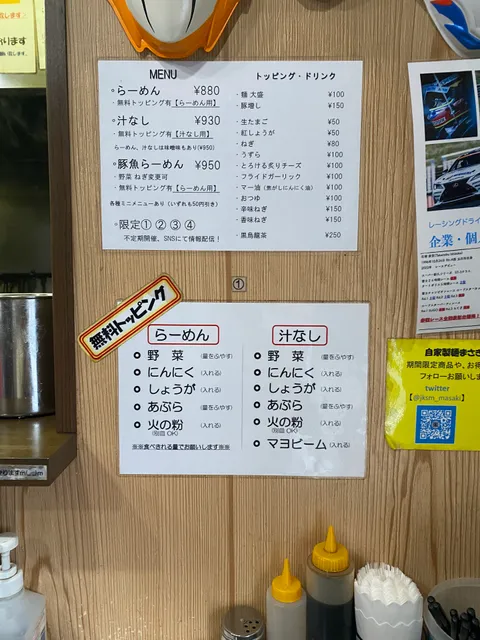 MENU
・らーめん ¥880
・無料トッピング有【らーめん用】
・汁なし ¥930
・無料トッピング有【汁なし用】
らーめん、汁なしは味噌味もあり(¥950)
・豚魚らーめん ¥950
・野菜 ねぎ変更可
・無料トッピング有【らーめん用】
各種ミニメニューあり(いずれも50円引き)
・限定① ② ③ ④
不定期開催、SNSにて情報配信!
トッピング・ドリンク
・麺 大盛 ¥100
・豚増し ¥150
・生たまご ¥50
・紅しょうが ¥50
・ねぎ ¥80
・うずら ¥100
・とろける炙りチーズ ¥100
・フライドガーリック ¥100
・マー油(焦がしにんにく油) ¥100
・おつゆ ¥100
・辛味ねぎ ¥150
・香味ねぎ ¥150
・黒烏龍茶 ¥250
①
無料トッピング
らーめん
野菜 (量をふやす)
にんにく (入れる)
しょうが (入れる)
あぶら (量をふやす)
火の粉 (入れる)
(別皿OK)
※※食べきれる量でお願いします※※
汁なし
野菜 (量をふやす)
にんにく (入れる)
しょうが (入れる)
あぶら (量をふやす)
火の粉 (入れる)
(別皿OK)
マヨビーム (入れる)
レーシングドライ
企業・個人
自家製麺まさき
期間限定商品や、お得
フォローお願いしま
twitter
【@jksm_masaki】